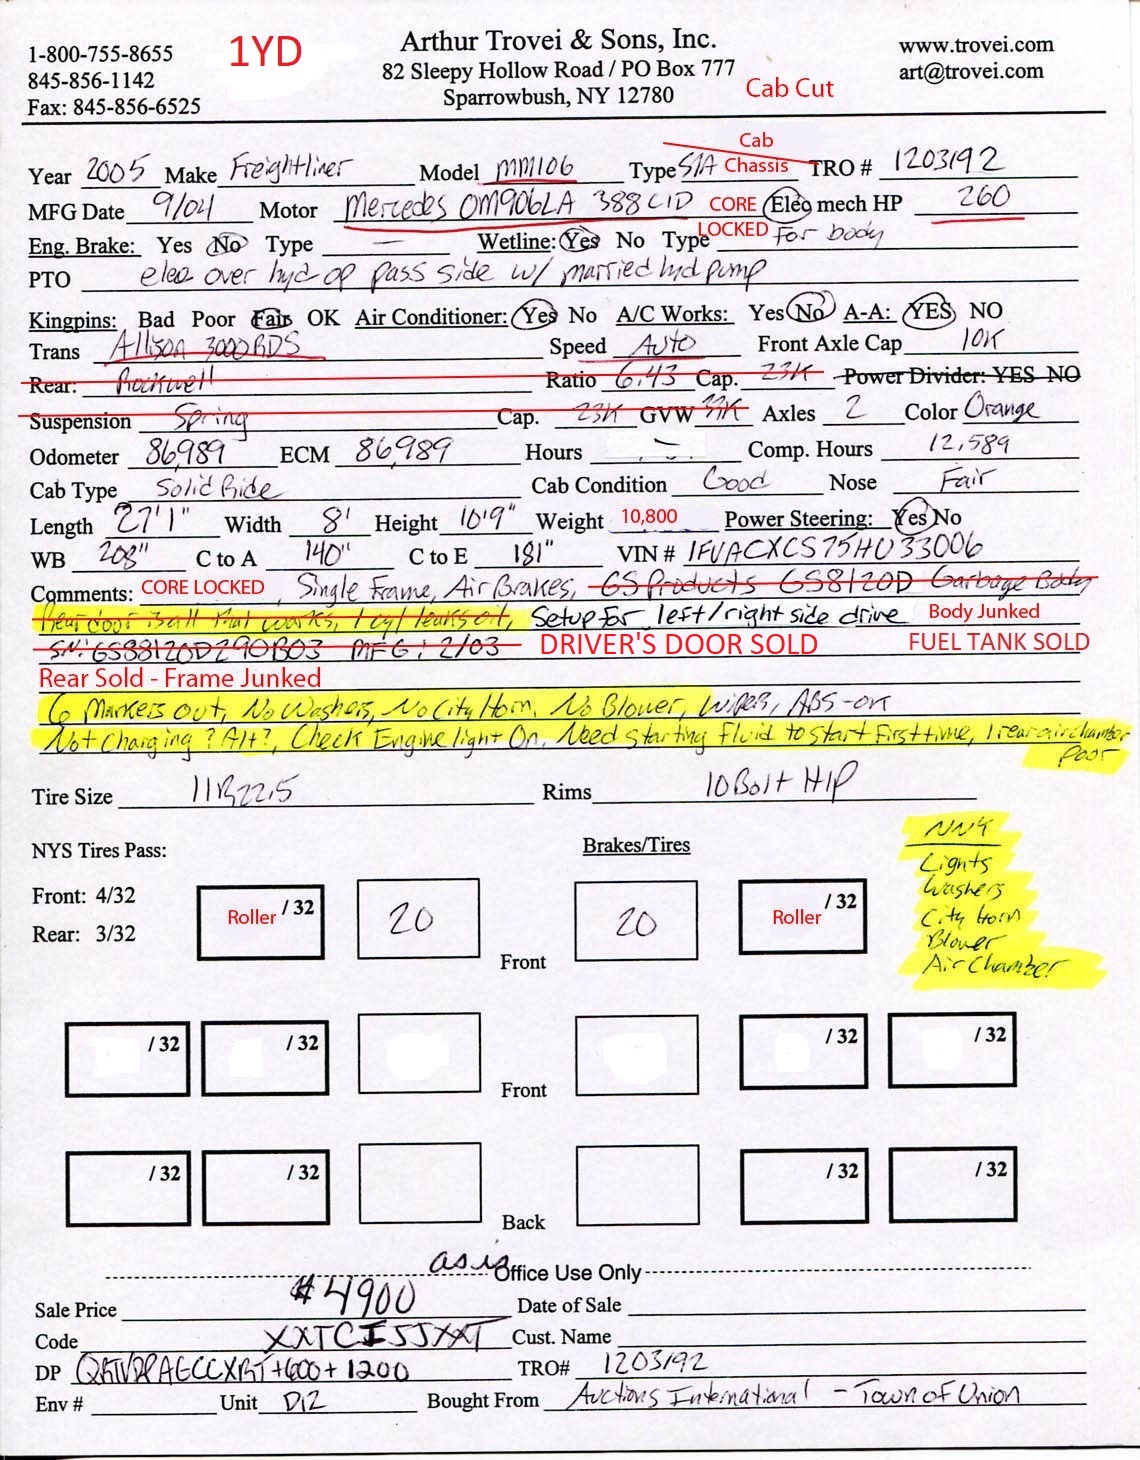 1-800-755-8655 1YD Arthur Trovei & Sons, Inc. www.trovei.com
845-856-1142 82 Sleepy Hollow Road / PO Box 777 art@trovei.com
Fax: 845-856-6525 Sparrowbush, NY 12780 Cab Cut
Year 2005 Make Freightliner Model MM106 Type S/A Cab Chassis TRO # 1203192
MFG Date 9/04 Motor Mercedes OM906LA 388 CID CORE Elec mech HP 260
Eng. Brake: Yes No Type — Wetline: Yes No Type LOCKED For body
PTO elec over hyd op pass side w/ married hyd pump
Kingpins: Bad Poor Fair OK Air Conditioner: Yes No A/C Works: Yes No A-A: YES NO
Trans Allison 3000RDS Speed Auto Front Axle Cap 10K
Rear: Rockwell Ratio 6.43 Cap. 23K Power Divider: YES NO
Suspension Spring Cap. 23K GVW 33K Axles 2 Color Orange
Odometer 86,989 ECM 86,989 Hours — Comp. Hours 12,589
Cab Type Solid Ride Cab Condition Good Nose Fair
Length 27'1" Width 8' Height 10'9" Weight 10,800 Power Steering: Yes No
WB 208" C to A 140" C to E 181" VIN # 1FVACXCS75HU33006
Comments: CORE LOCKED , Single Frame, Air Brakes, GS Products GS8120D Garbage Body
Rear door Ball that works, 1 cyl leaks oil, Setup for left/right side drive Body Junked
SN: GS88120D290B03 MFG: 2/03 DRIVER'S DOOR SOLD FUEL TANK SOLD
Rear Sold - Frame Junked
6 Markers out, No Washers, No City Horn, No Blower, Wipers, ABS-OK
Not Charging ? Alt?, Check Engine light On, Need starting fluid to start First time, 1 rear air chamber
Poor
Tire Size 11R22.5 Rims 10 Bolt HP
NYS Tires Pass: Brakes/Tires
NNY
Lights
Washers
City Horn
Blower
Air Chamber
Front: 4/32 Roller / 32 20 20 Roller / 32
Rear: 3/32
Front
/ 32 / 32 / 32 / 32
Front
/ 32 / 32 / 32 / 32
Back
as is
Office Use Only
Sale Price #4900 Date of Sale
Code XXTCISJXXT Cust. Name
DP +600+1200 TRO# 1203192
Env # Unit D12 Bought From Auctions International - Town of Union